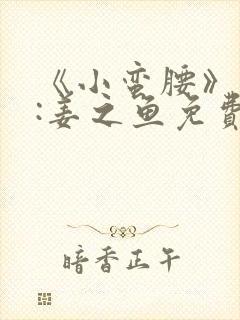 《小蛮腰》
:姜之鱼免費
暗香正午